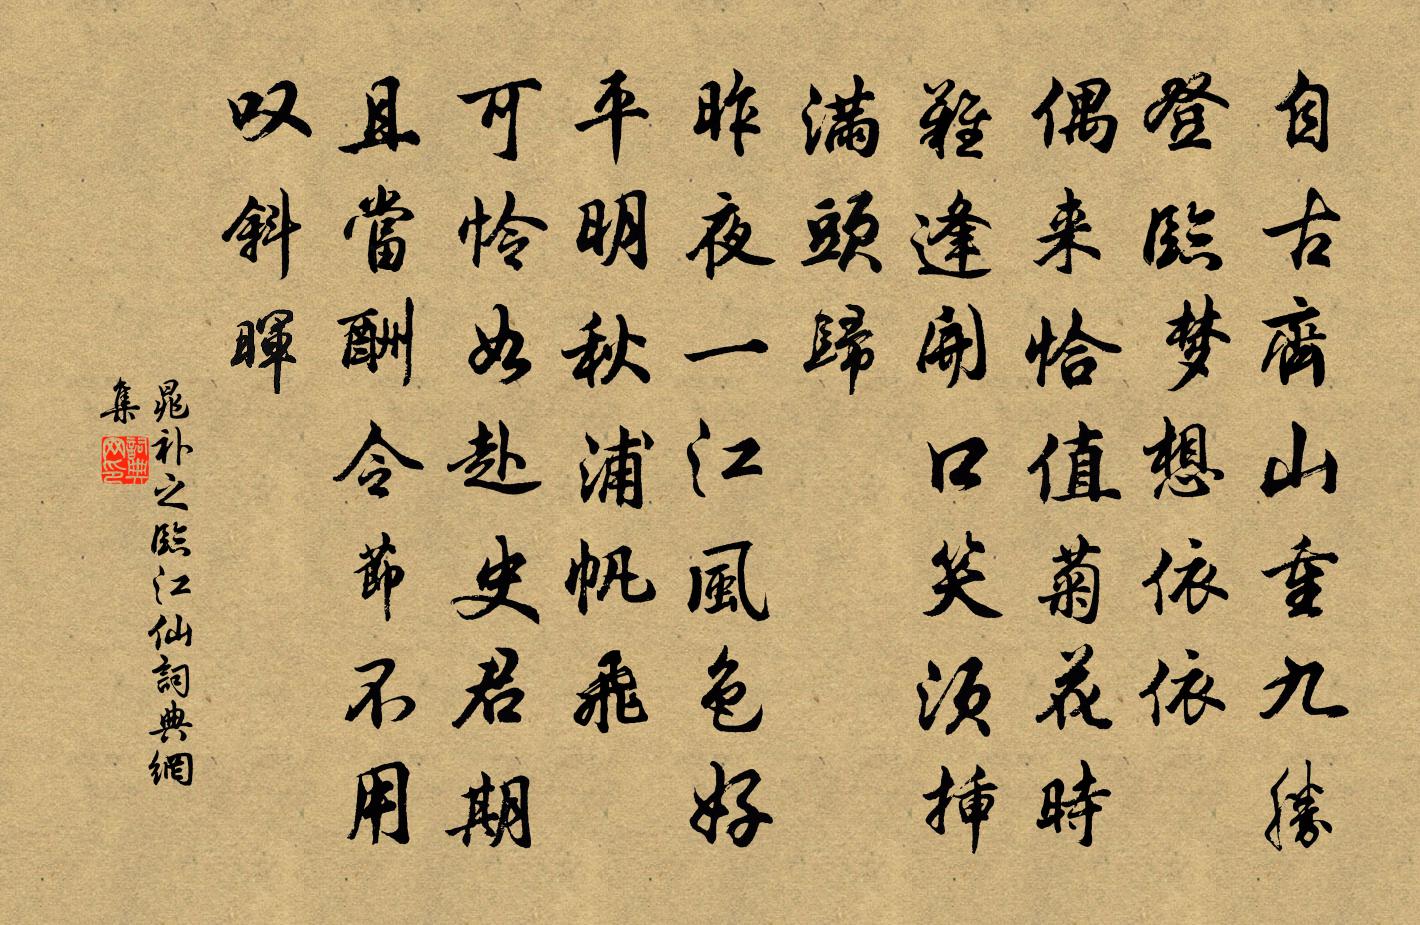 自古齊山重九勝
登臨梦想依依
偶来恰值菊花時
難逢開口笑須插
滿頭歸
昨夜一江風色好
平明秋浦帆飛
可怜如赴史君期
且當酬令節不用
叹斜暉
晁补之臨江仙詞典網
集
詞典网印